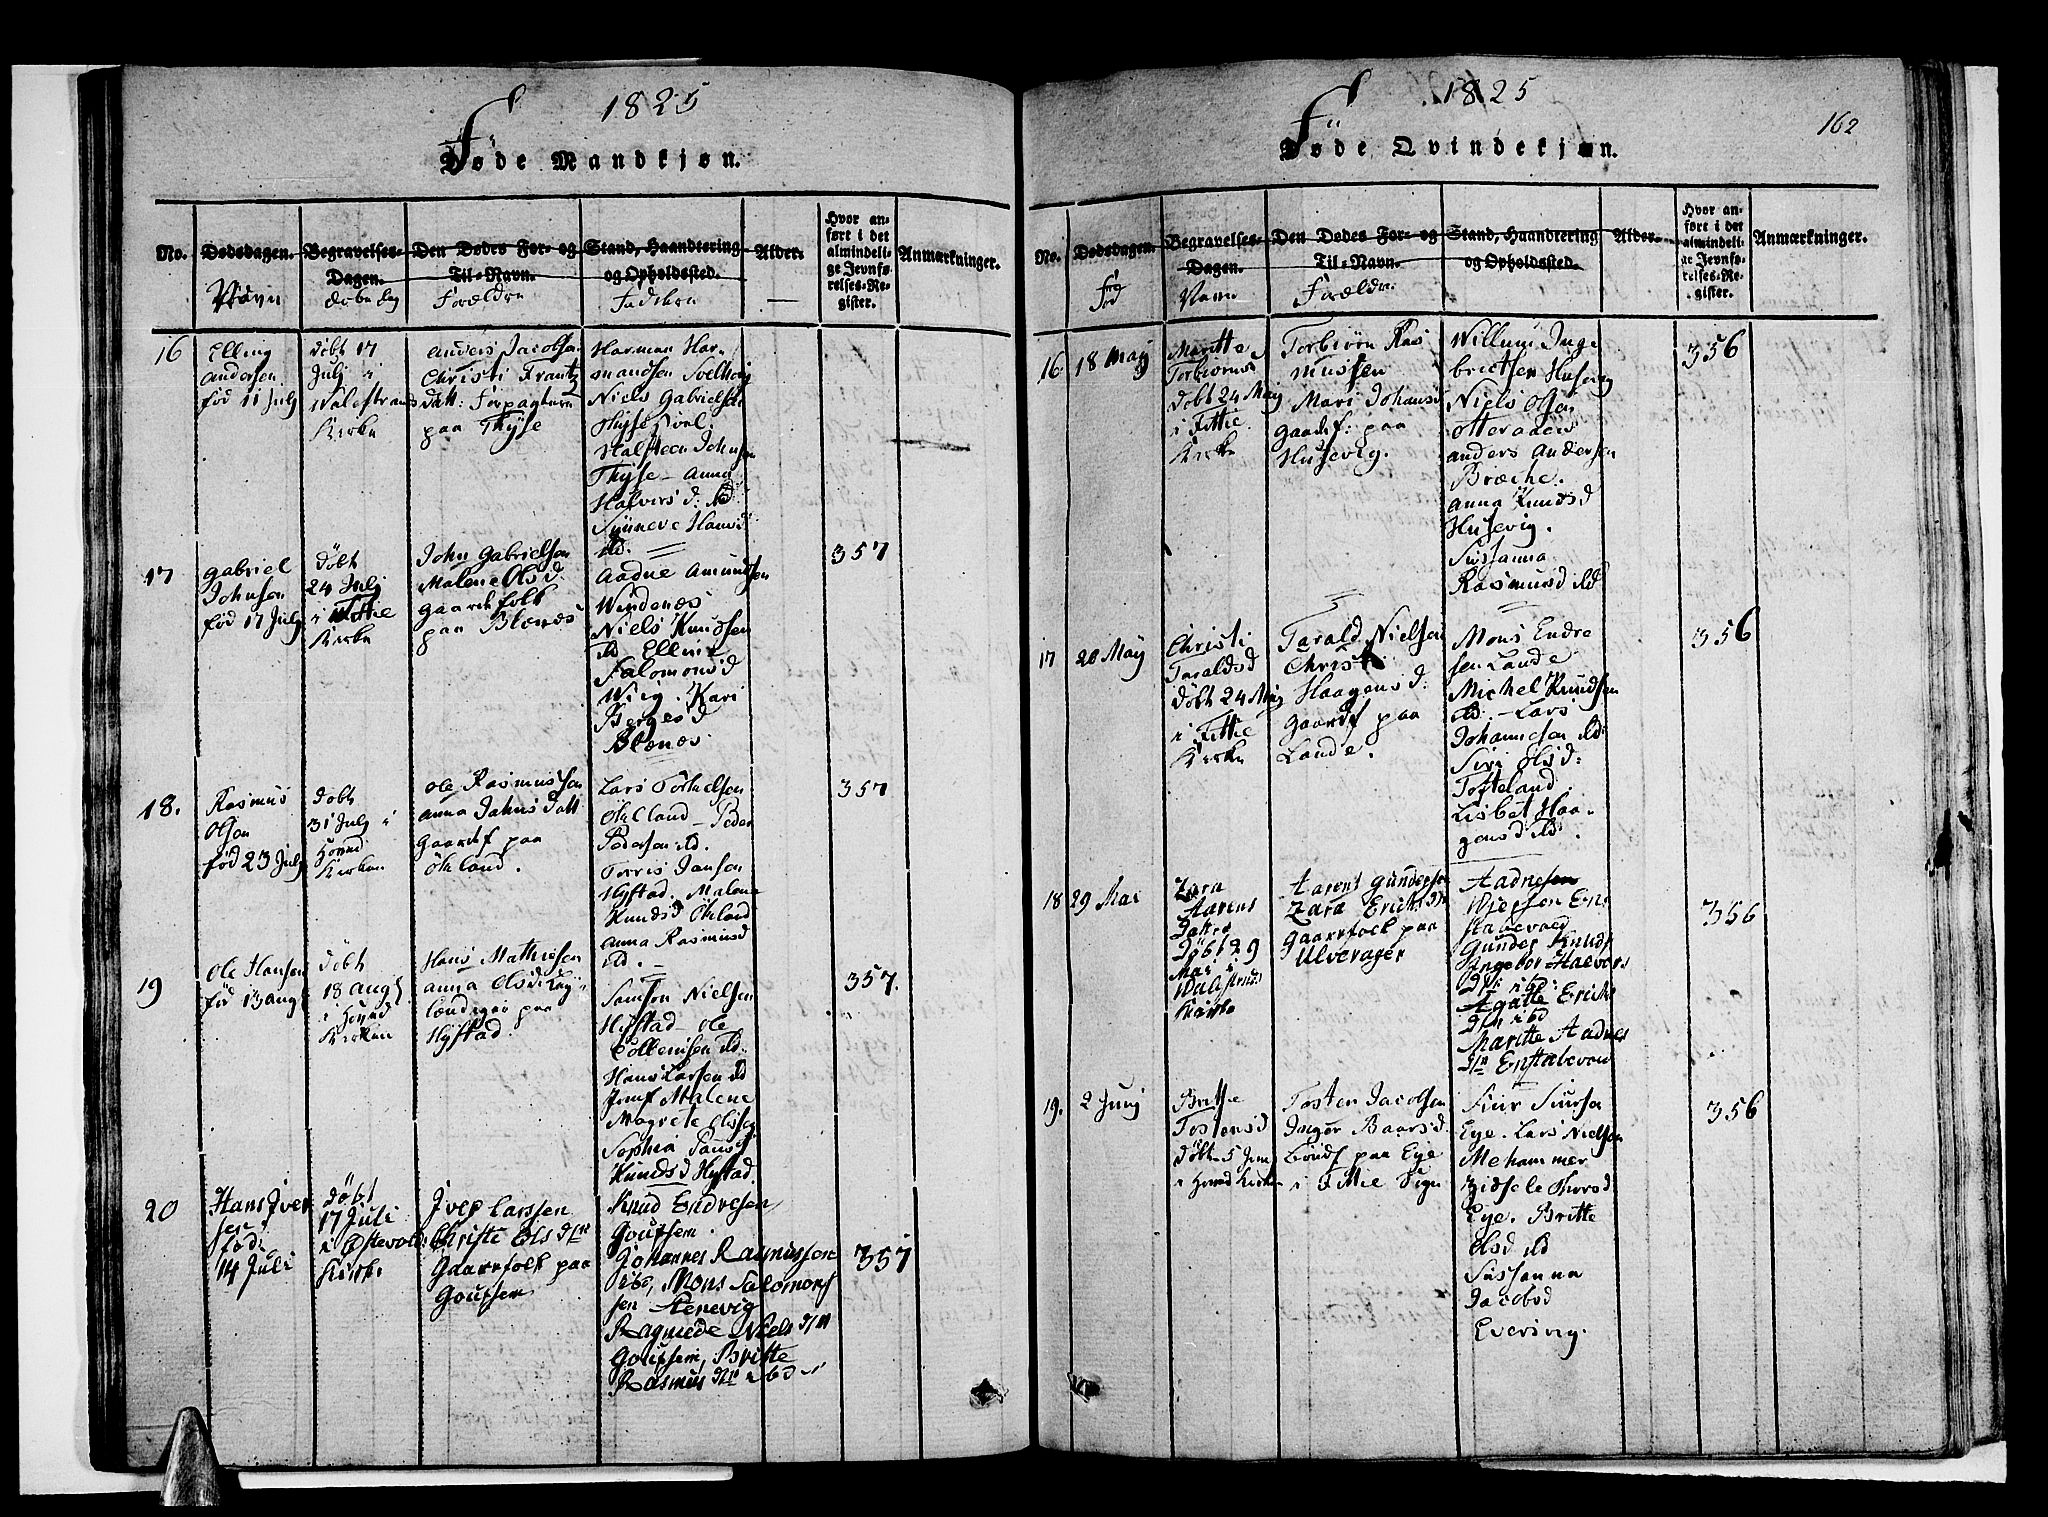 1825
Føde Mandkjøn.
No.
Dødsdagen.
Navn
Begravelses-
Dagen.
Den Dødes For- og
Til-Navn.
Forældre
Stand, Haandtering
og Opholdssted.
Faddere
Alder.
Hvor an-
ført i det
almindeli-
ge Jevnfø-
relses-Re-
gister.
Anmærkninger.
16
Elling
Andersen
fød 11 July
Døbt 17
Julj i
Kirke
Anders Jacobsen
Christi Frantz
Datt: Forpagtere
paa Thyse
Harman Har-
mandsen
Niels Gabrielsen
Halsteen Johnsen
Thyse - Anna
Halvors d: ibd
Synneve Hansd
ibd.
17
Gabriel
Johnsen
fød 17 July
Døbt
24 July
i Fittie
Kirke
John Gabrielsen
Malene Olsd:
Gaardfolk
paa Blænæs
Aadne Amundsen
Windenæs
Niels Knudsen
ibd Ellen
Salomonsd
Wiig. Kari
Bergesd
Blænæs.
357
18.
Rasmus
Olsen
fød 23 July
Døbt
31 July i
Hoved
Kirken
Ole Rasmussen
Anna Jahns Datt
Gaardf paa
Økland.
Lars Torkelsen
Økland - Peder
Pedersen ibd.
Torris Jansen
Hystad. Malene
Knudsd Økland
Anna Rasmusd
ibd.
357
19
Ole Hansen
fød 13 aug
Døbt
18 aug
i Hoved
Kirken
Hans Mathiesen
Anna Olsd
paa
Hystad.
Samson Nielsen
Hystad - Ole
ibd.
Hans Larsen ibd
Malene
Magrete
Sophia
Knudsd Hystad.
357.
20
Hans Iver
sen
fød.
14 Juli
Døbt
17 Juli
i Østevold
Kirke
Iver Larssen
Christe Ols dtr
Gaarfolk paa
Goupsem
Knud Endresen
Goupsem.
Johannes Rasmussen
ibd, Mons Salomons
sen Stenevig
Ragnede Niels dtr
Goupsem, Britte
Rasmus dtr ibd
357
1825
162
Føde Qvindekjøn.
No.
Dødsdagen.
fød
Begravelses-
Dagen.
Navn
Den Dødes For- og
Til-Navn.
Forældre
Stand, Haandtering
og Opholdssted.
Alder.
Hvor an-
ført i det
almindeli-
ge Jevnfø-
relses-Re-
gister.
Anmærkninger.
16.
18 May
Maritte
Torbiørns
Døbt 24 May
i Fittie
Kirke
Torbiørn Ras
mussen
Mari Johansd
Gaardf: paa
Husevig.
Willum Inge
brictsen Husevig
Niels Olsen
Otteraaen
Anders Andersen
Bræche.
Anna Knudsd
Husevig.
Sussanna
Rasmusd ibd
356
17
20 May
Christi
Taraldsd
Døbt 24 May
i Fittie
Kirke
Tarald Nielsen
Christi
Haagensd:
Gaardf paa
Lande.
Mons Endre
sen Lande
Michel Knudsen
ibd. - Lars
Johannesen ibd:
Siri Olsd:
Tofteland.
Lisbet Haa-
gensd ibd.
356
18
29 Mai
Zara
Aarens
Datter
Døbt 29
Mai i
Kirke
Aarent Gundersen
Zara Erichs dtr
Gaarfolk paa
Ulverager
Aadnesen
Gunder Knuds
Ingebor Halvors
dtr ibd:
Agatte Erichs
dtr ibd
Maritte Aadnes
dtr Enstabevold
356
19.
2 Junj
Britte
Tostensd
Døbt 5 Juni
i Hoved Kirken
Tosten Jacobsen
Inger Baarsd.
Bondf paa Eye
i Fittie Sogn
Siur Siursen
Eye. Lars Nielsen
Mehammer
Zidsele Thorsd
Eye. Britte
Olsd ibd
Sussanna
Jacobsd
Evering.
356